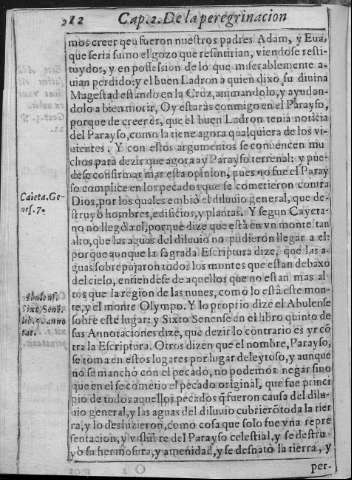 212 Cap. 2. De la peregrinacion
mos creer qeu fueron nuestros padres Adam, y Eua,
que seria sumo el gozo que resintirian, viendose resti-
tuydos, y en possesion de lo que miserablemente a-
uian perdido; y el buen Ladron a quien dixo su diuina
Magestad estando en la Cruz, animandolo, y ayudan-
dolo a bien morir, Oy estaràs conmigo en el Parayso,
porque de creer es, que el buen Ladron tenia noticia
del Parayso, como la tiene agora qualquiera de los vi-
uientes. Y con estos argumentos se conuencen mu-
chos para dezir que agora ay Parayso terrenal: y pue-
dese confirmar mas esta opinion, pues no fue el Paray
so complice en los pecados que se cometieron contra
Dios, por los quales embiò el diluuio general, que de-
struyò hombres, edificios, y plantas. Y segun Cayeta-
no no llegò a el, porque dize que està en vn monte tan
alto, que las aguas del diluuio no pudieron llegar a el:
porque aunque la sagrada Escriptura dize, que las a-
guas sobrepujaron todos los montes que estan debaxo
del cielo, entiendese de aquellos que no estan mas al-
tos que la region de las nunes, como lo està este mon-
te, y el monte Olympo. Y lo proprio dize el Abulense
sobre este lugar: y Sixto Senense en el libro quinto de
sus Annotaciones dize, que dezir lo contrario es yr cõ-
tra la Escriptura. Otros dizen que el nombre, Parayso,
se toma en estos lugares por lugar deleytoso, y aunque
no se manchò con el pecado, no podemos negar sino
que en el se cometio el pecado original, que fue princi-
pio de todos aquellos pecados q̃ fueron causa del dilu-
uio general, y las aguas del diluuio cubrierõ toda la tier
ra, y lo desluzieron, como cosa que solo fue vna repre
sentacion, y vislũbre del Parayso celestial, y se destru-
yò su hermosura, y amenidad, y se desnatò la tierra, y
per-
Caieta. Ge-
nes. 7.
Abulens.
Sixt. Sene.
lib. 5. anno
tat.